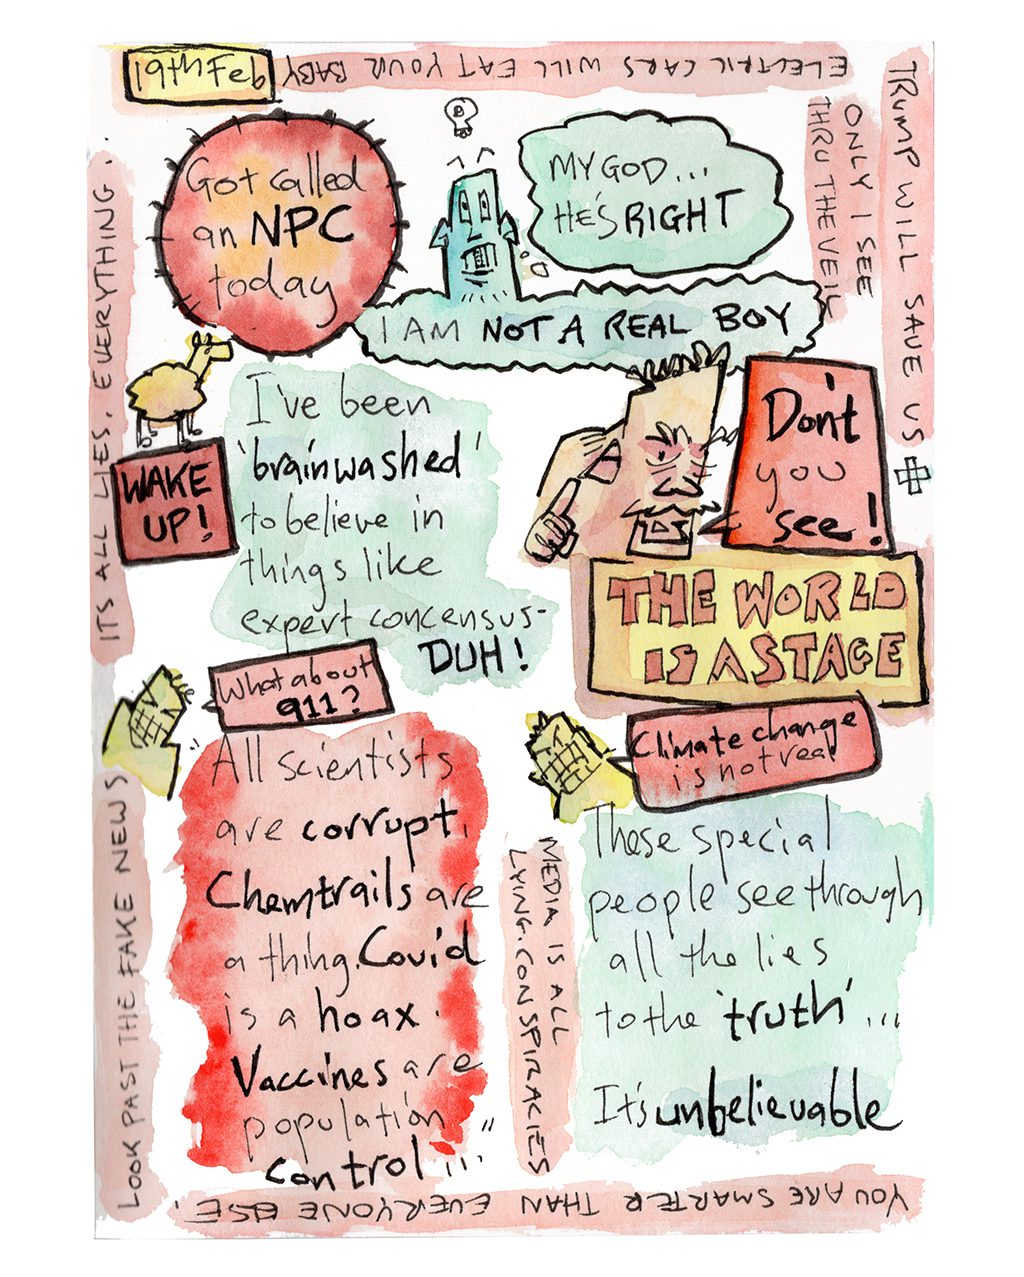 19th Feb
ELECTRIC CARS WILL EAT YOUR BABY
TRUMP WILL SAVE US
ONLY I SEE
THRU THE VEIL
ITS ALL LIES. EVERYTHING.
Got called
an NPC
today
MY GOD...
HE'S RIGHT
I AM NOT A REAL BOY
I've been
'brainwashed'
to believe in
things like
expert concensus-
DUH!
WAKE
UP!
Don't
you
see!
THE WORLD
IS A STAGE
What about
911?
Climate change
is not real
All scientists
are corrupt.
Chemtrails are
a thing. Covid
is a hoax.
Vaccines are
population
control..."
These special
people see through
all the lies
to the 'truth'...
It's unbelievable
MEDIA IS ALL
LYING. CONSPIRACIES
LOOK PAST THE FAKE NEWS
YOU ARE SMARTER THAN EVERYONE ELSE.